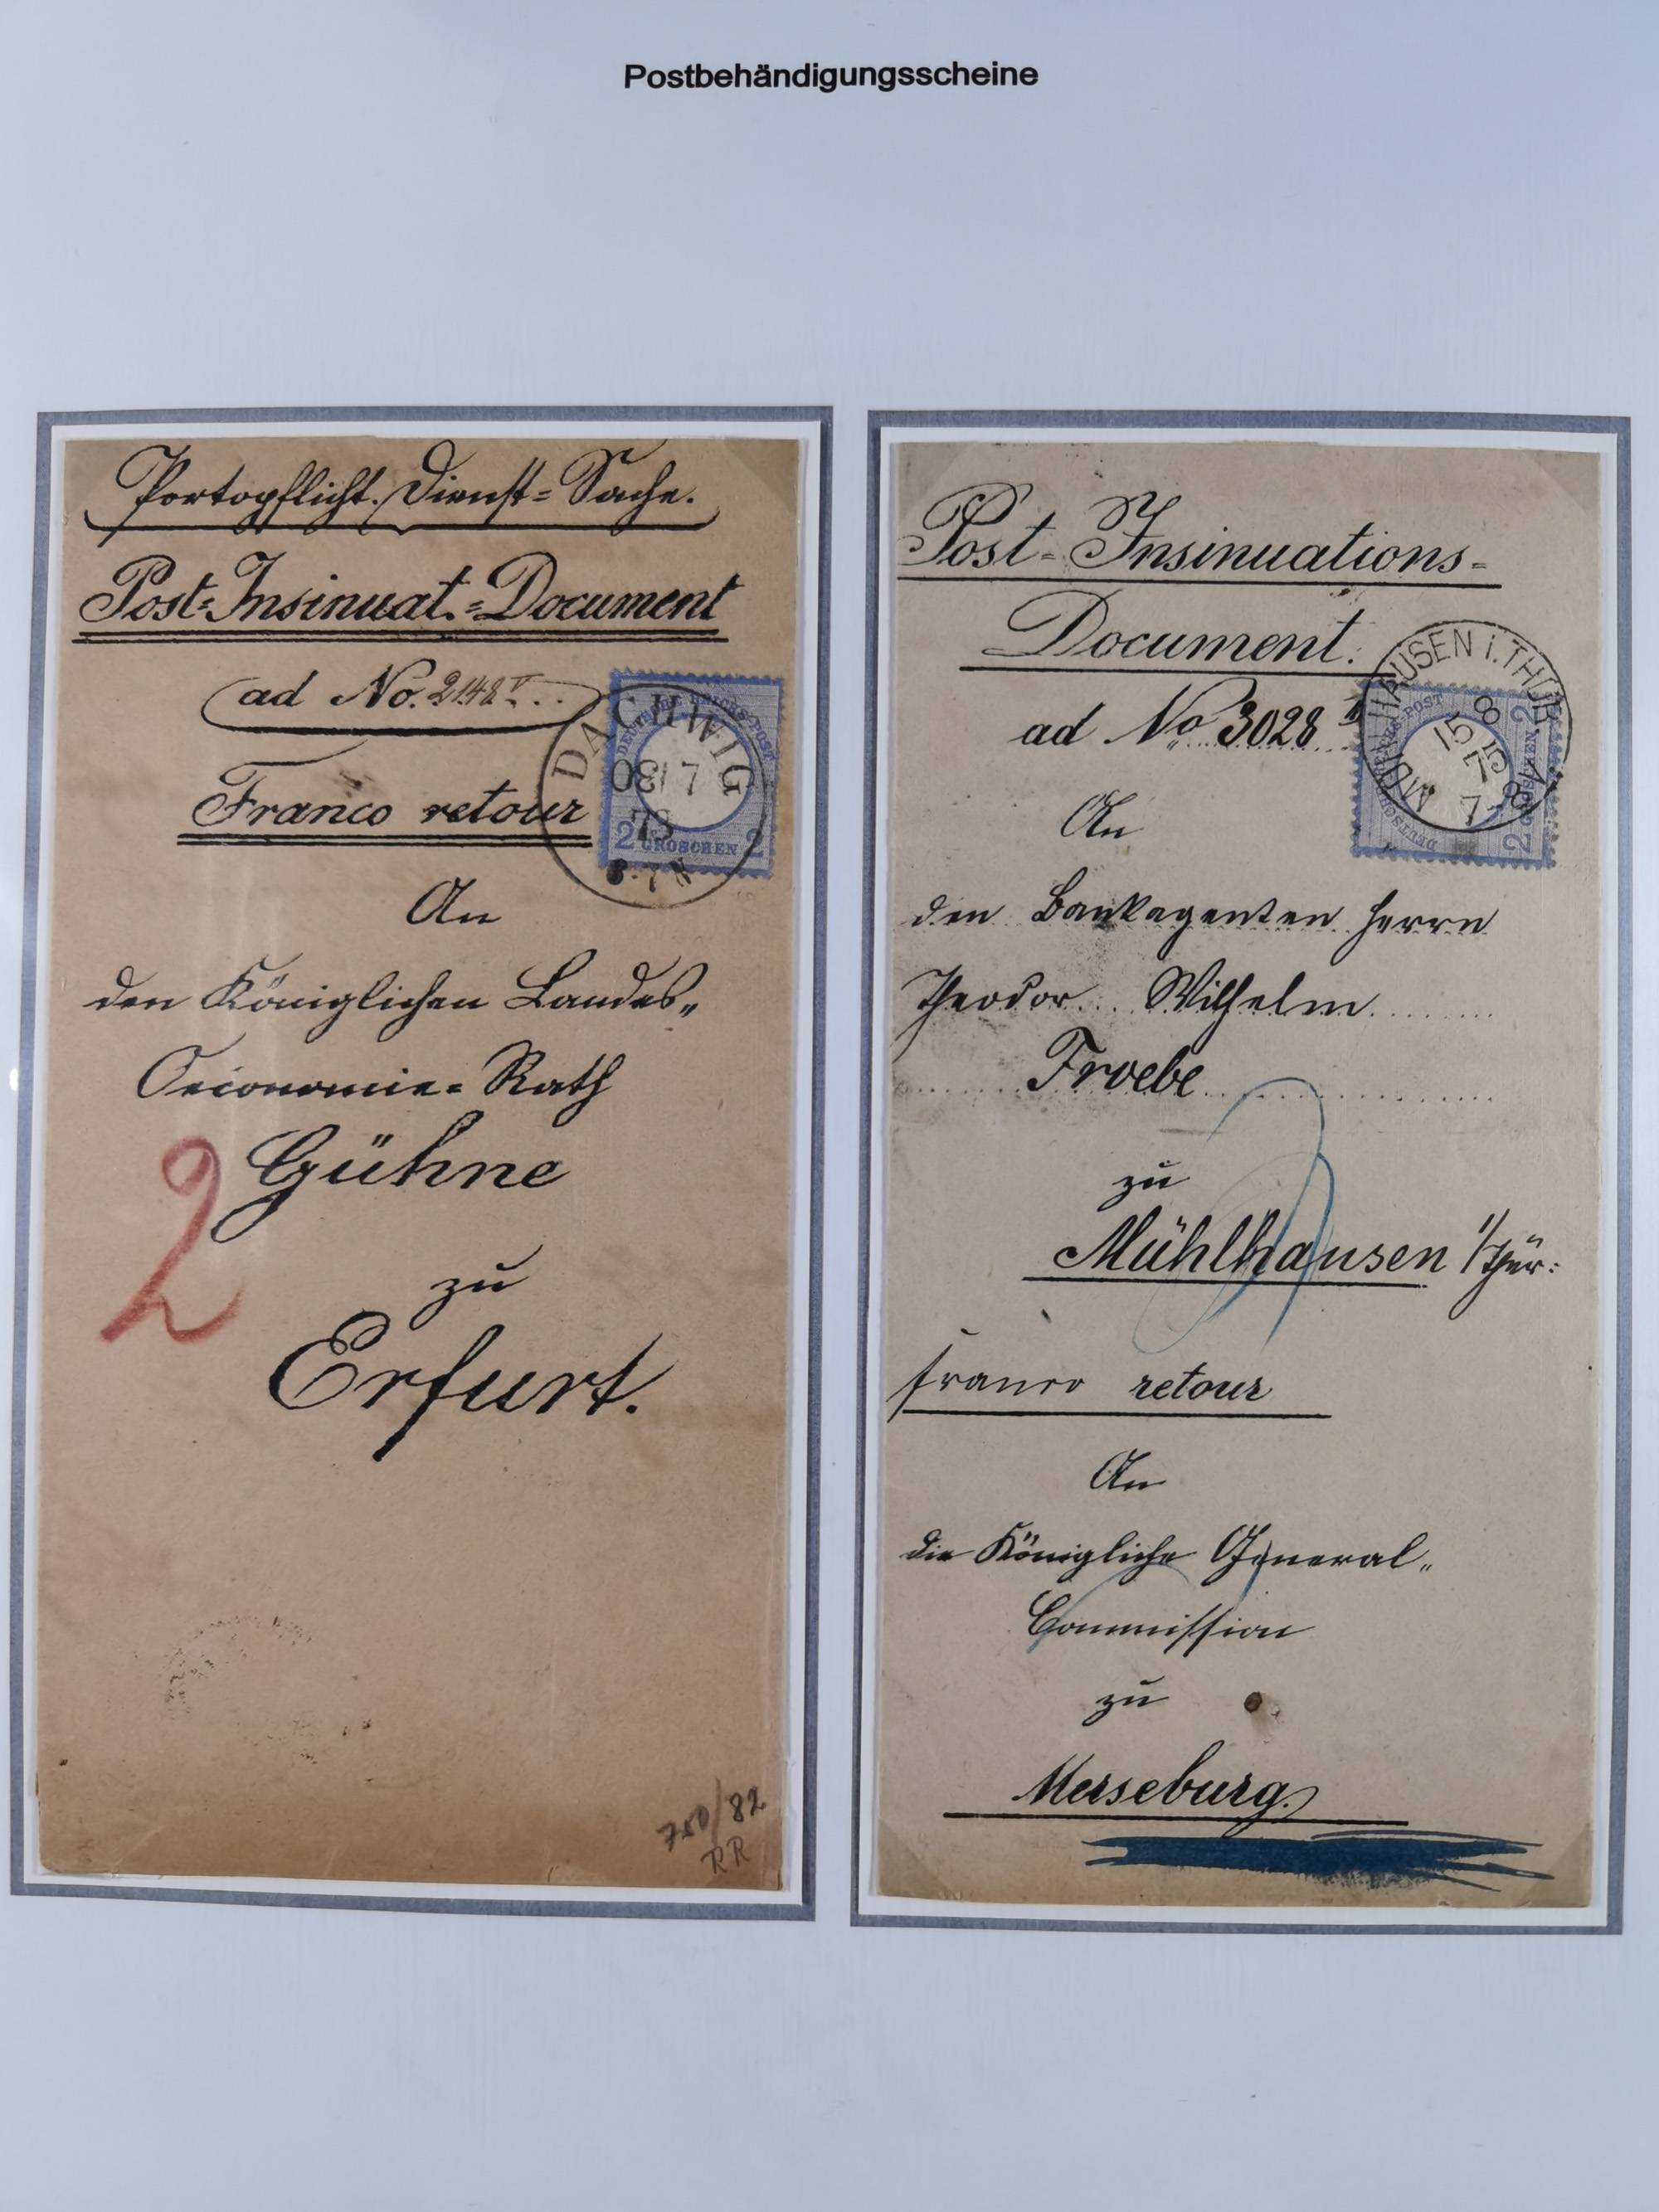 Postbehändigungsscheine
Portopflicht. Dienst=Sache.
Post=Insinuat.=Document
ad No. 2148 V
Franco retour
DACHWIG
DEUTSCHE REICHS-POST
30 7
73
6-7 N
2 GROSCHEN 2
An
den Königlichen Landes„
Oeconomie=Rath
Gühne
2
zu
Erfurt.
750/82
RR
Post=Insinuations=
Document.
ad No 3028
MÜHLHAUSEN i. THÜR.
15 8
75
7-8 V.
DEUTSCHE REICHS-POST
2 GROSCHEN 2
An
den Bankagenten Herrn
Theodor Wilhelm
Froebe
zu
Mühlhausen i/Thür:
franco retour
An
die Königliche General„
Commission
zu
Merseburg.